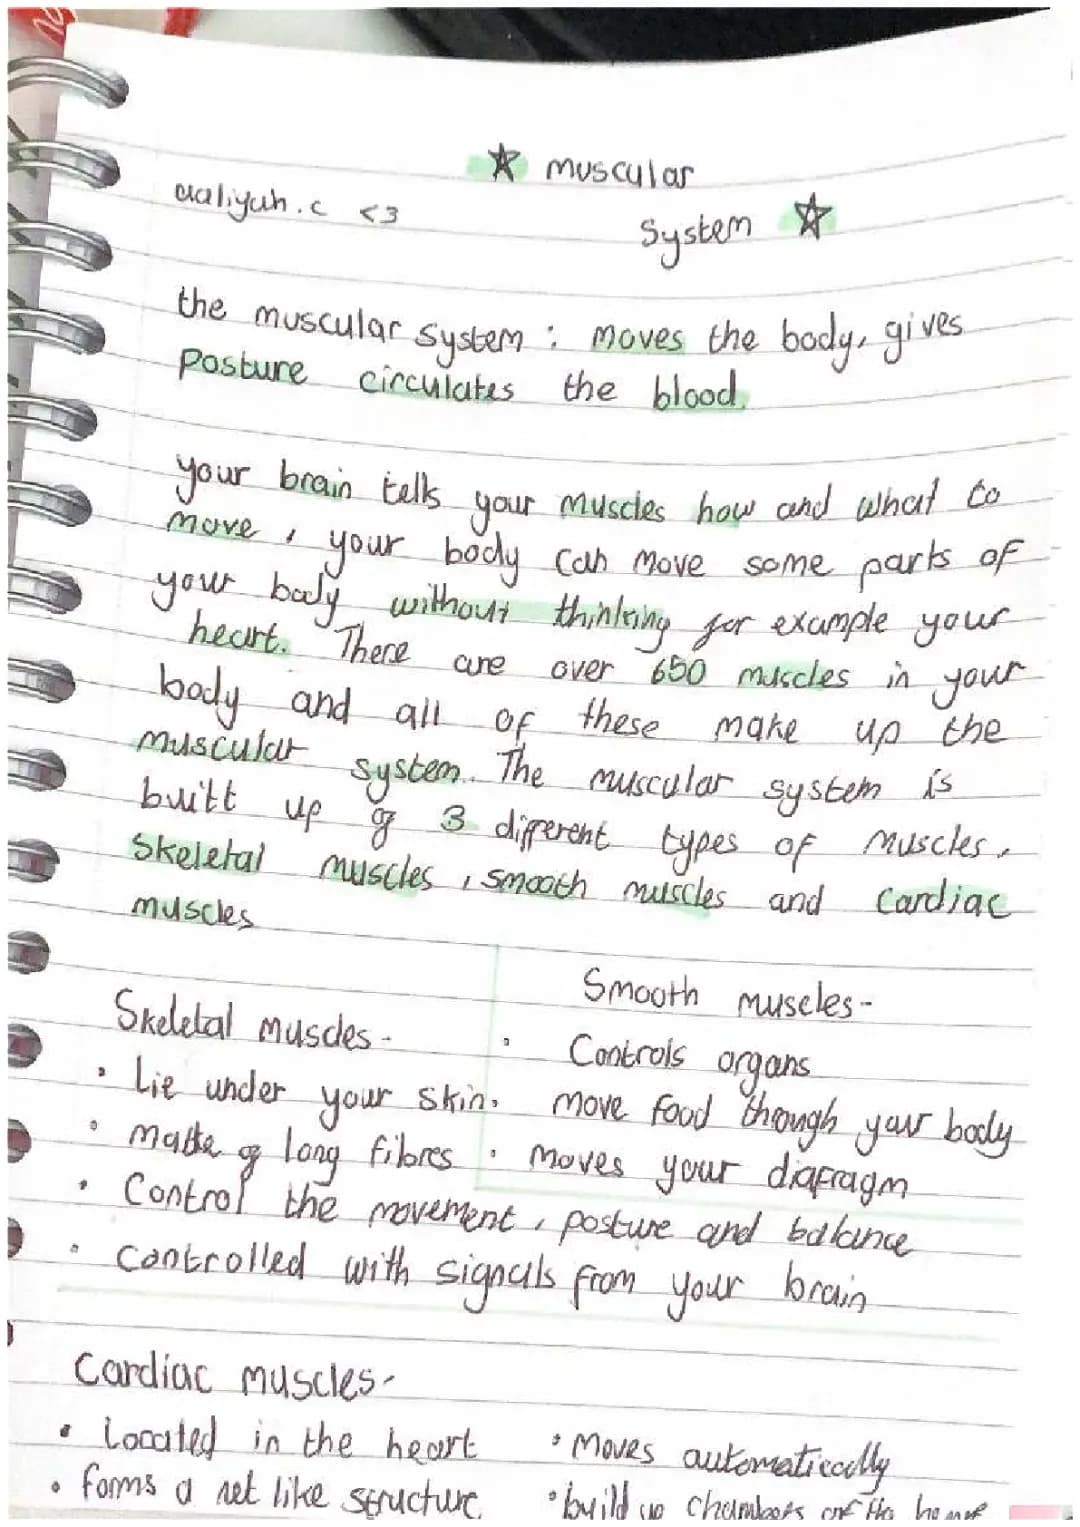 ☆ muscular
aaliyah.c <3
System ☆
the muscular system : moves the body, gives
Posture circulates the blood.
your brain tells your muscles how and what to
move, your body can move some parts of
your body without thinking for example your
heart. There are over 650 muscles in your
body and all of these make up the
muscular system. The muscular system is
built up of 3 different types of muscles,
Skeletal muscles, smooth muscles and Cardiac
muscles
Smooth muscles-
Skeletal muscles-
• Controls organs
• Lie under your skin.
move food through your body
• made of long fibres
• moves your diafragm
• Control the movement, posture and balance
• Controlled with signals from your brain
Cardiac muscles-
• Located in the heart
• Moves automatically
• forms a net like structure
• build up chambers of the heart